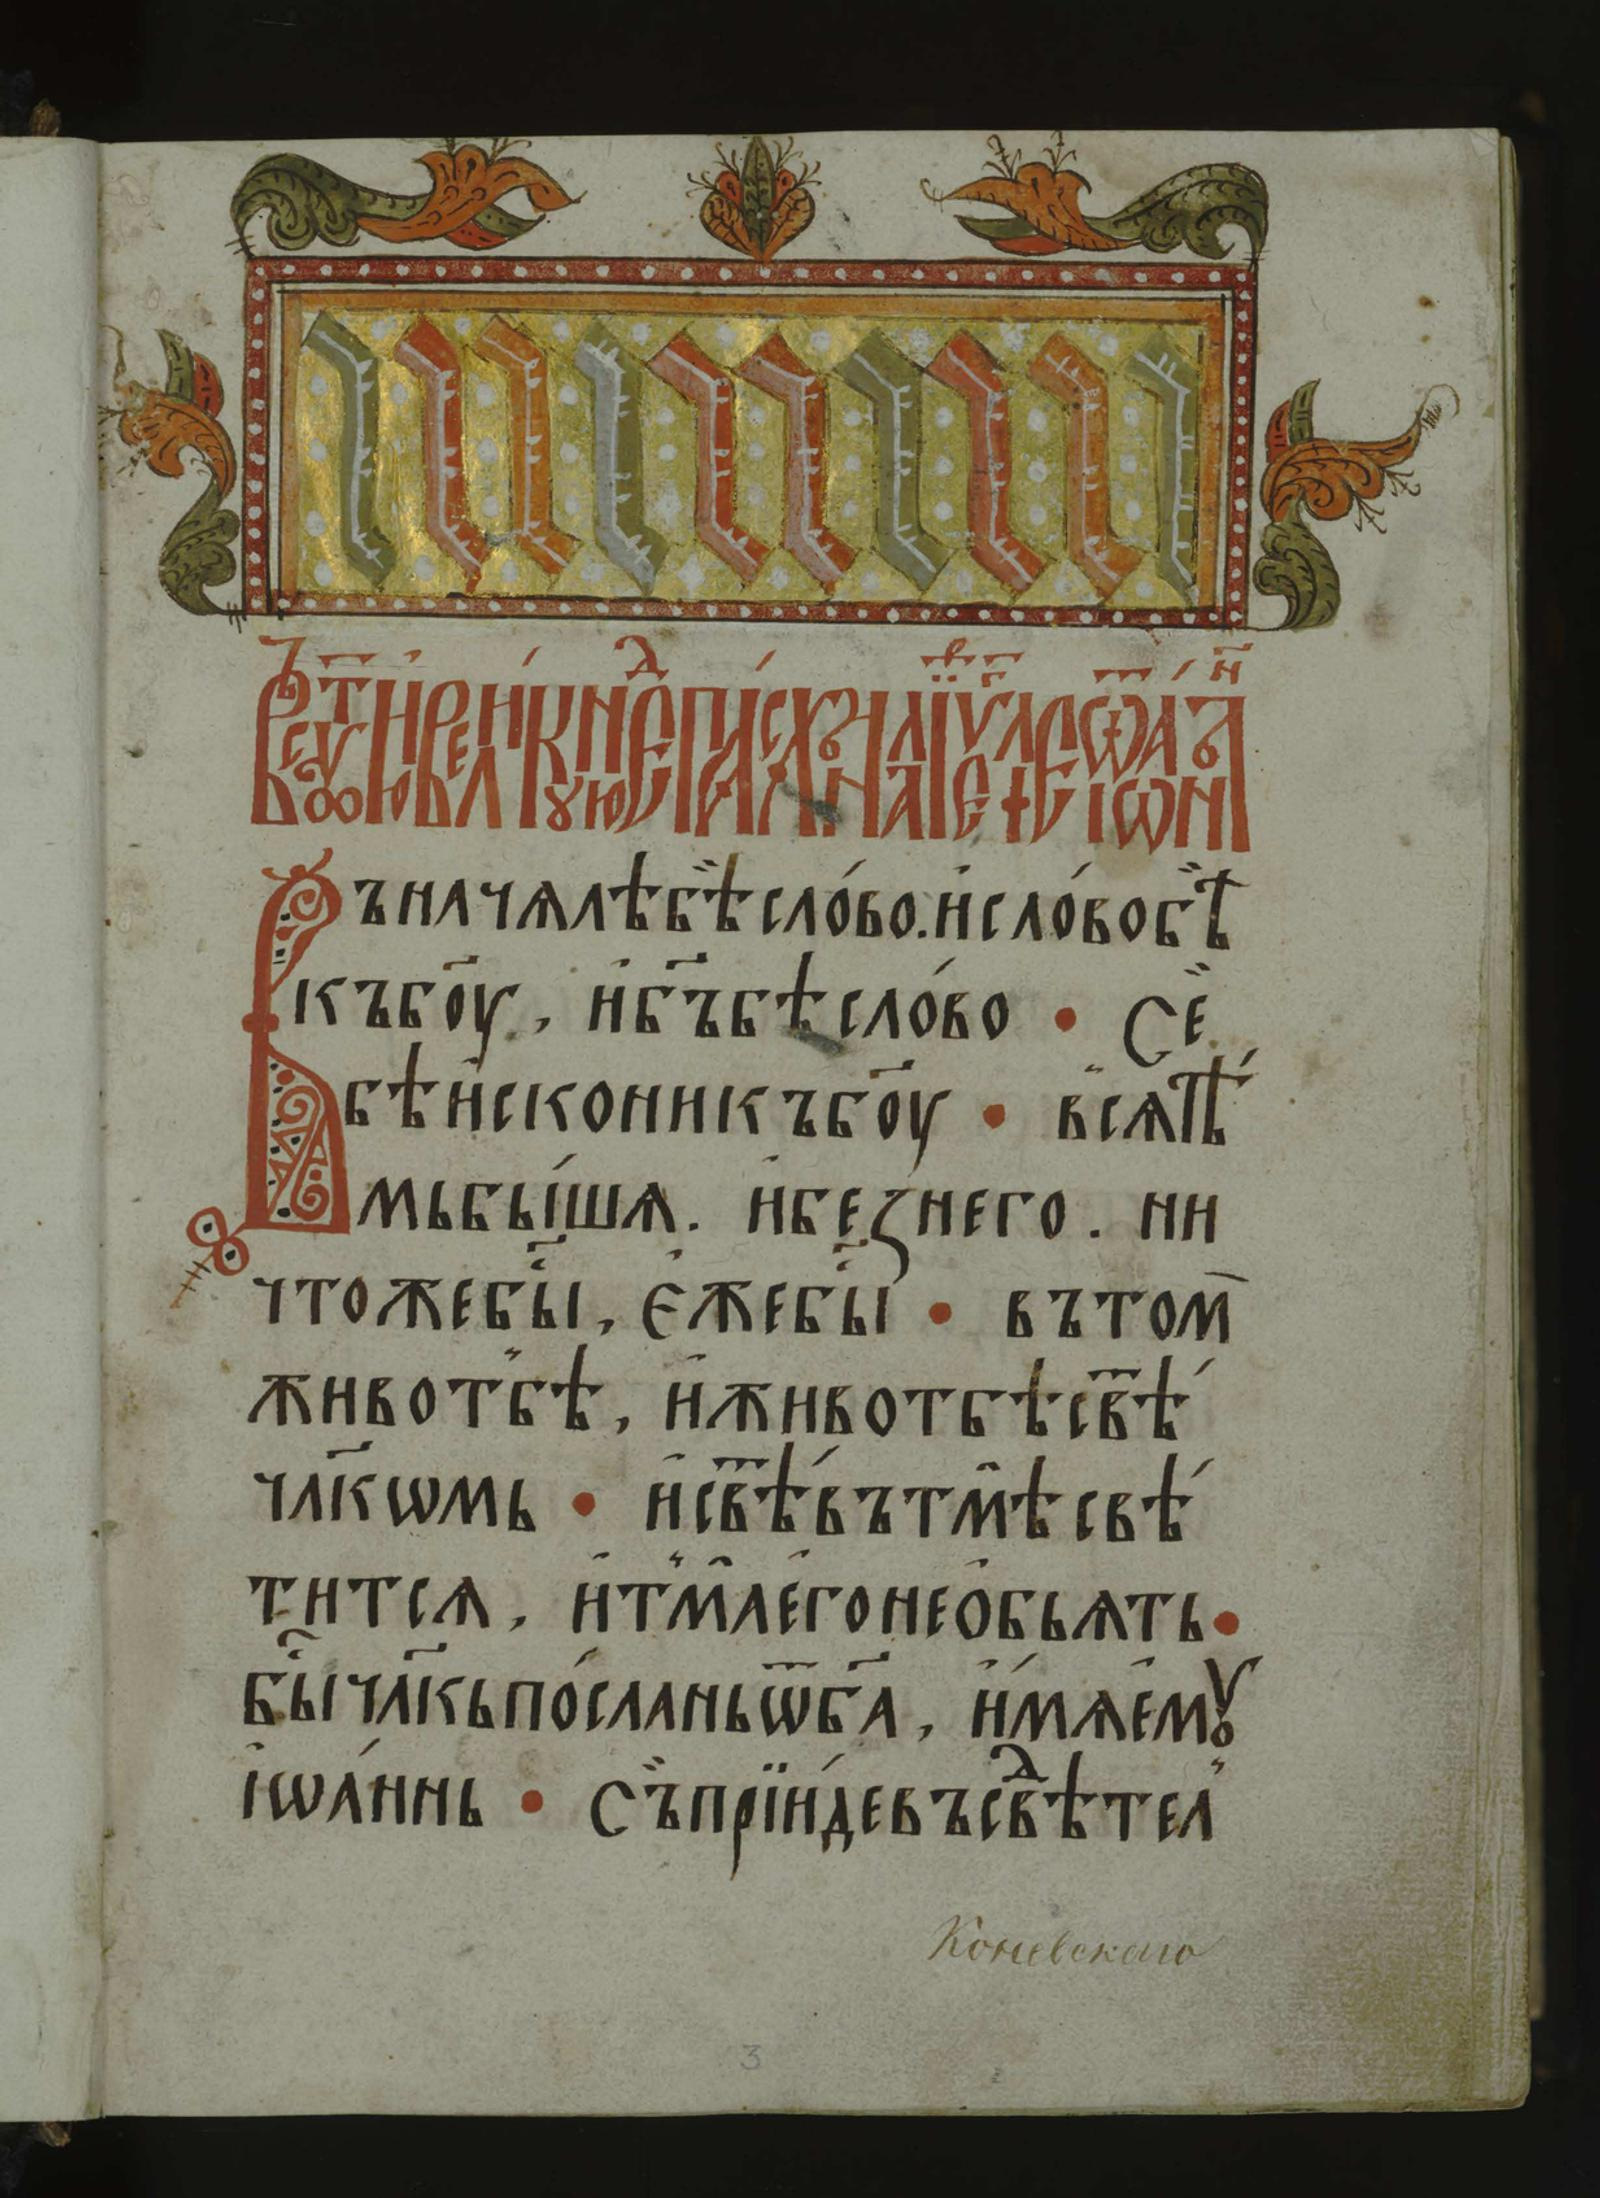 Въ ст҃ꙋю и҆ вели́кꙋю нед҃лю па́схи
Въначѧлѣбѣ̏сло́во.и҆сло́вобѣ̏
къбо҃у, и҆бг҃ъбѣсло́во • Се̏
бѣи҆сконикъбо҃у • всѧтѣ́
мьбы́шѧ. и҆беꙁнего. ни
чтожебы҃, є҆жебы҃ • вътом̄
животбѣ̏, и҆животбѣсв҃ѣ́
чл҃кѡмь • и҆св҃ѣ́вътм̑ѣсвѣ́
титсѧ, и҆тм̑ае҆гонео҆бьѧть•
бы҃чл҃кьпо́сланьѿб҃а, и҆́мѧе҆мꙋ
і҆ѡа́ннь • Съ̏прїи́девъсвⷣѣтел
Коневскаго
3